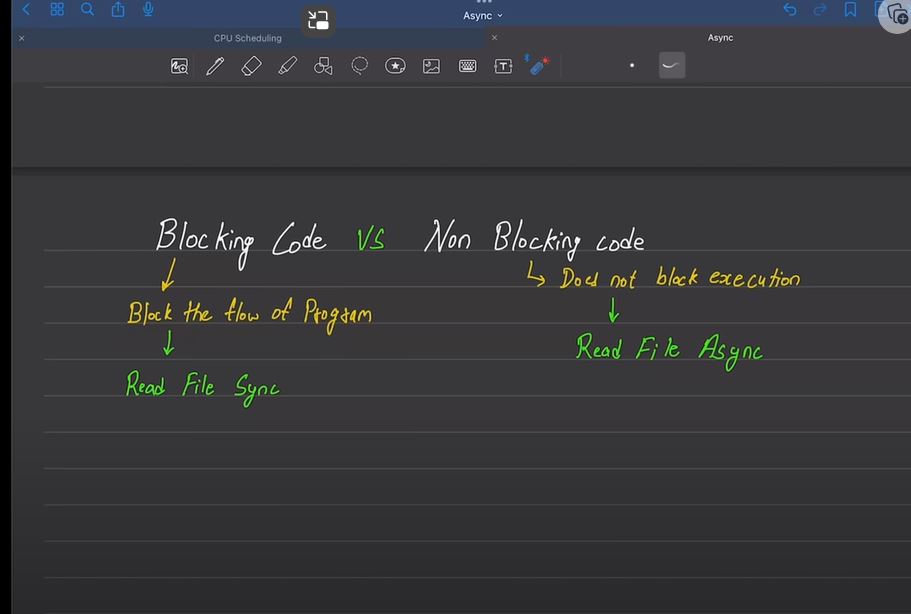 Async
CPU Scheduling
Async
T
Blocking Code VS Non Blocking code
Block the flow of Program
Read File Sync
Does not block execution
Read File Async